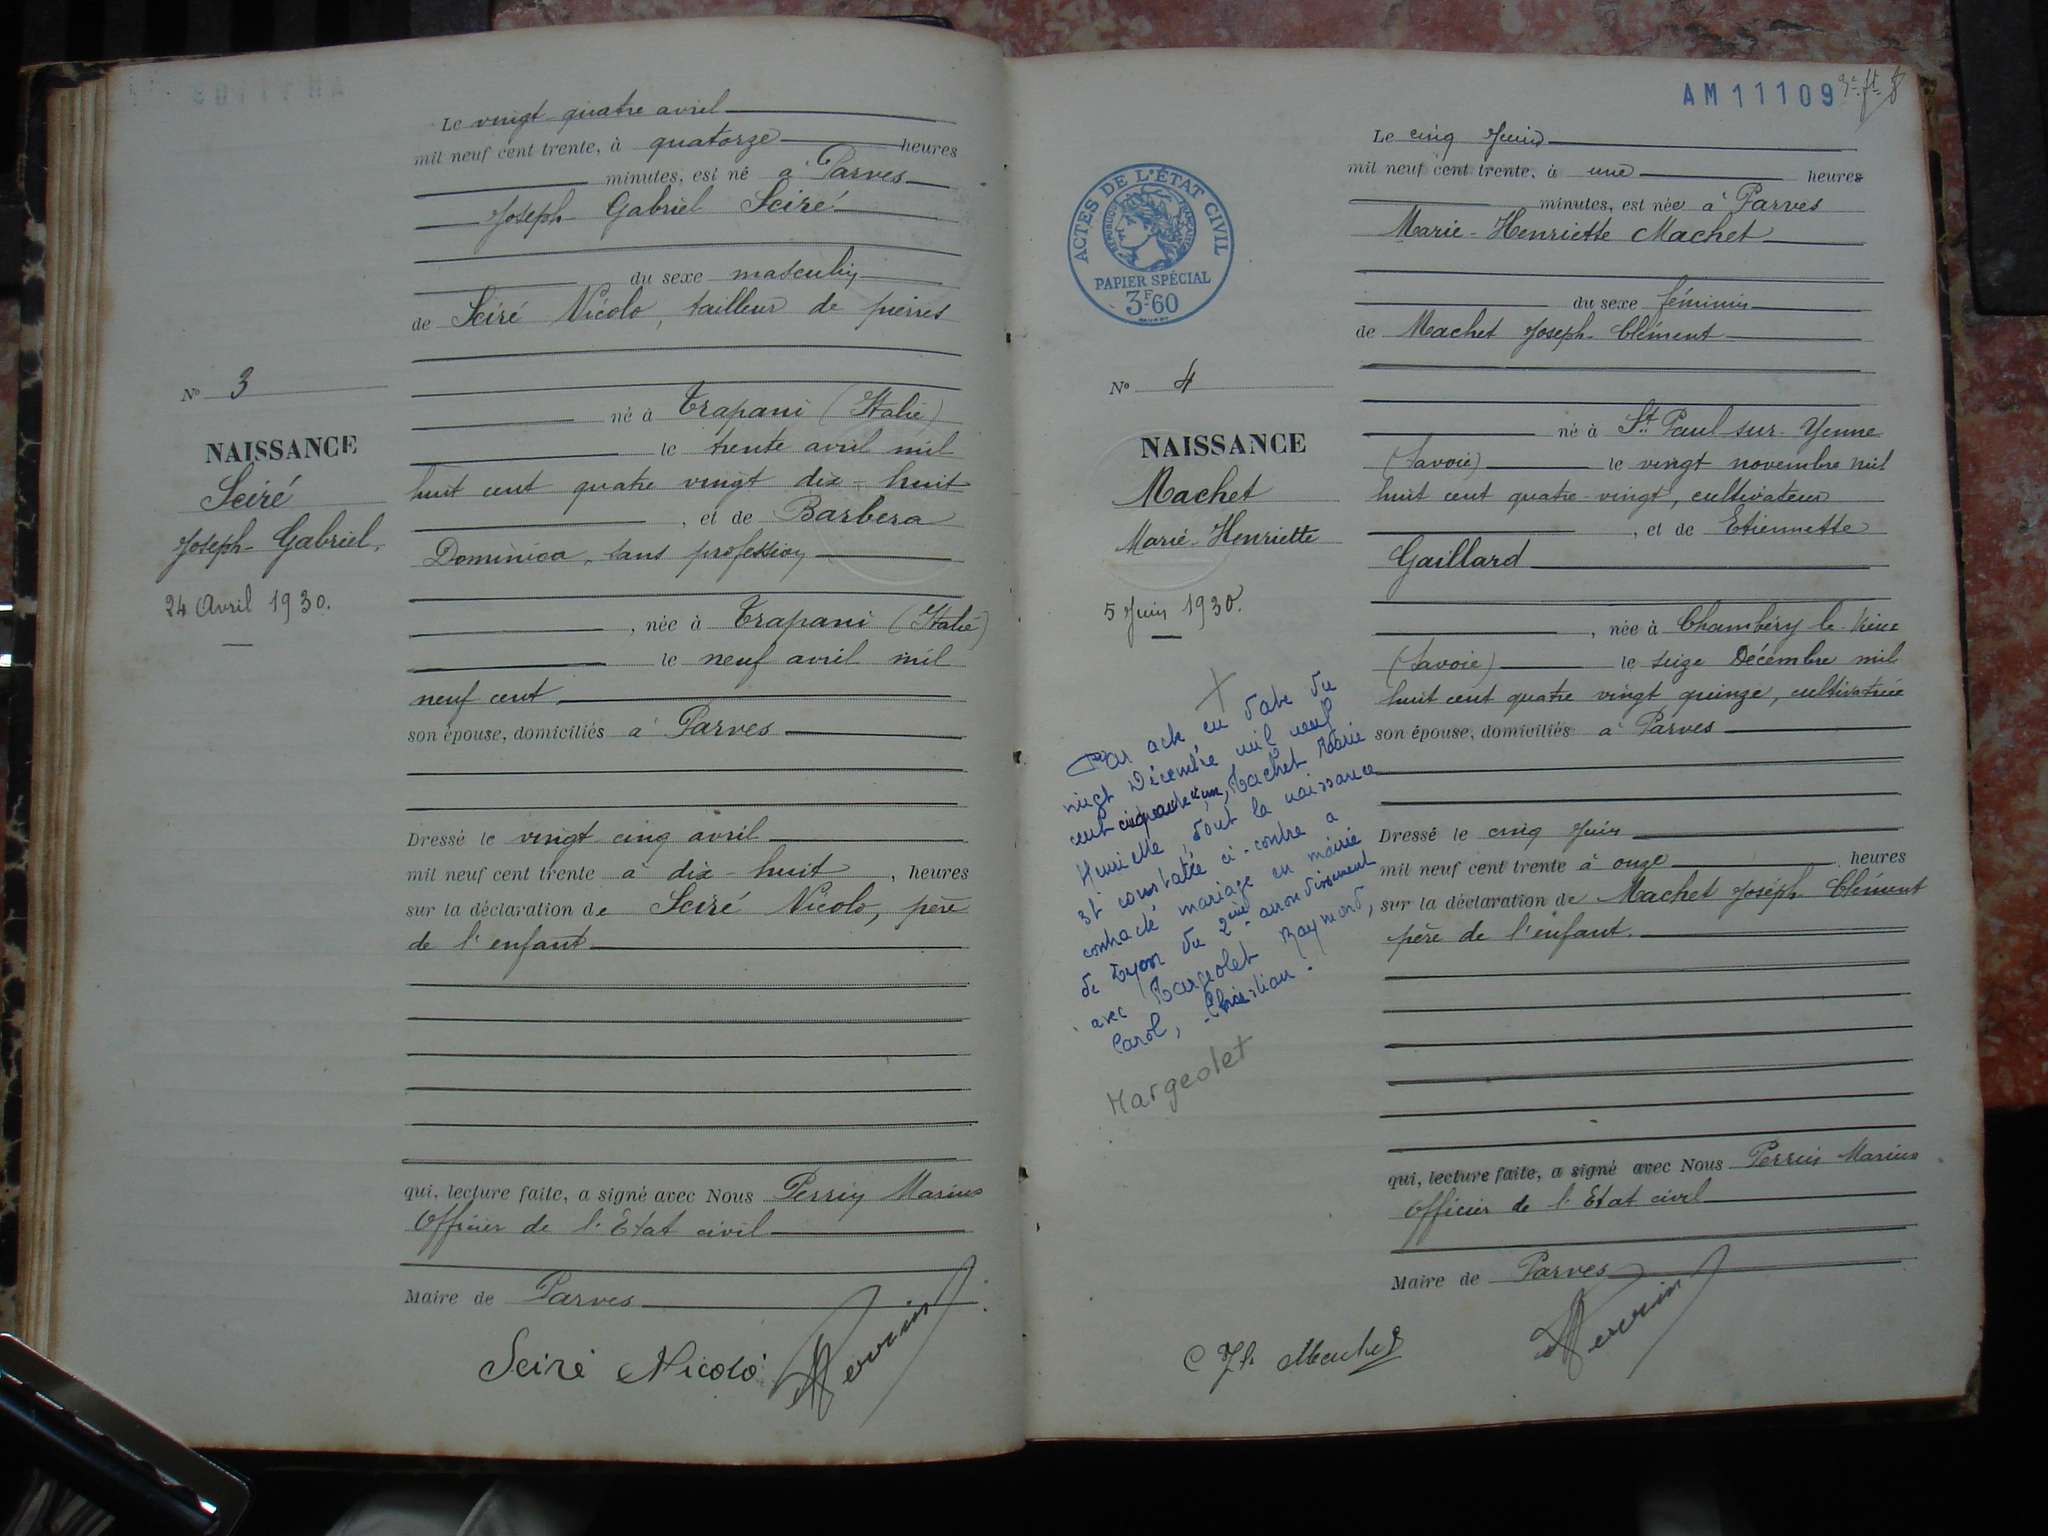 Le vingt quatre avril
mil neuf cent trente, à quatorze heures
minutes, est né à Parves
Joseph Gabriel Sciré
du sexe masculin
de Sciré Nicolo, tailleur de pierres
né à Trapani (Italie)
le trente avril mil
huit cent quatre vingt dix-huit
, et de Barbera
Dominica, sans profession
, née à Trapani (Italie)
le neuf avril mil
neuf cent
son épouse, domiciliés à Parves
Dressé le vingt cinq avril
mil neuf cent trente à dix-huit, heures
sur la déclaration de Sciré Nicolo, père
de l'enfant
qui, lecture faite, a signé avec Nous Perrin Marius
Officier de l'Etat civil
Maire de Parves
Sciré Nicolo Perrin
No 3
NAISSANCE
Sciré
Joseph-Gabriel.
24 Avril 1930.
AM11109
Le cinq Juin
mil neuf cent trente, à une heures
minutes, est née à Parves
Marie-Henriette Machet
du sexe féminin
de Machet Joseph-Clément
né à St Paul sur-Yenne
(Savoie) le vingt novembre mil
huit cent quatre-vingt, cultivateur
, et de Etiennette
Gaillard
, née à Chambéry le Vieux
(Savoie) le seize Décembre mil
huit cent quatre vingt quinze, cultivatrice
son épouse, domiciliés à Parves
Dressé le cinq Juin
mil neuf cent trente à onze heures
sur la déclaration de Machet Joseph Clément
père de l'enfant.
qui, lecture faite, a signé avec Nous Perrin Marius
Officier de l'Etat civil
Maire de Parves
Machet Perrin
ACTES DE L'ÉTAT CIVIL
RÉPUBLIQUE FRANÇAISE
PAPIER SPÉCIAL
3F60
No 4
NAISSANCE
Machet
Marie-Henriette
5 Juin 1930.
Par acte en date du
vingt Décembre mil neuf
cent cinquante et un, Machet Marie
Henriette, dont la naissance
est constatée ci-contre a
contracté mariage en mairie
de Lyon du 2ème arrondissement
avec Margeolet Raymond,
Carol, Christian.
Margeolet